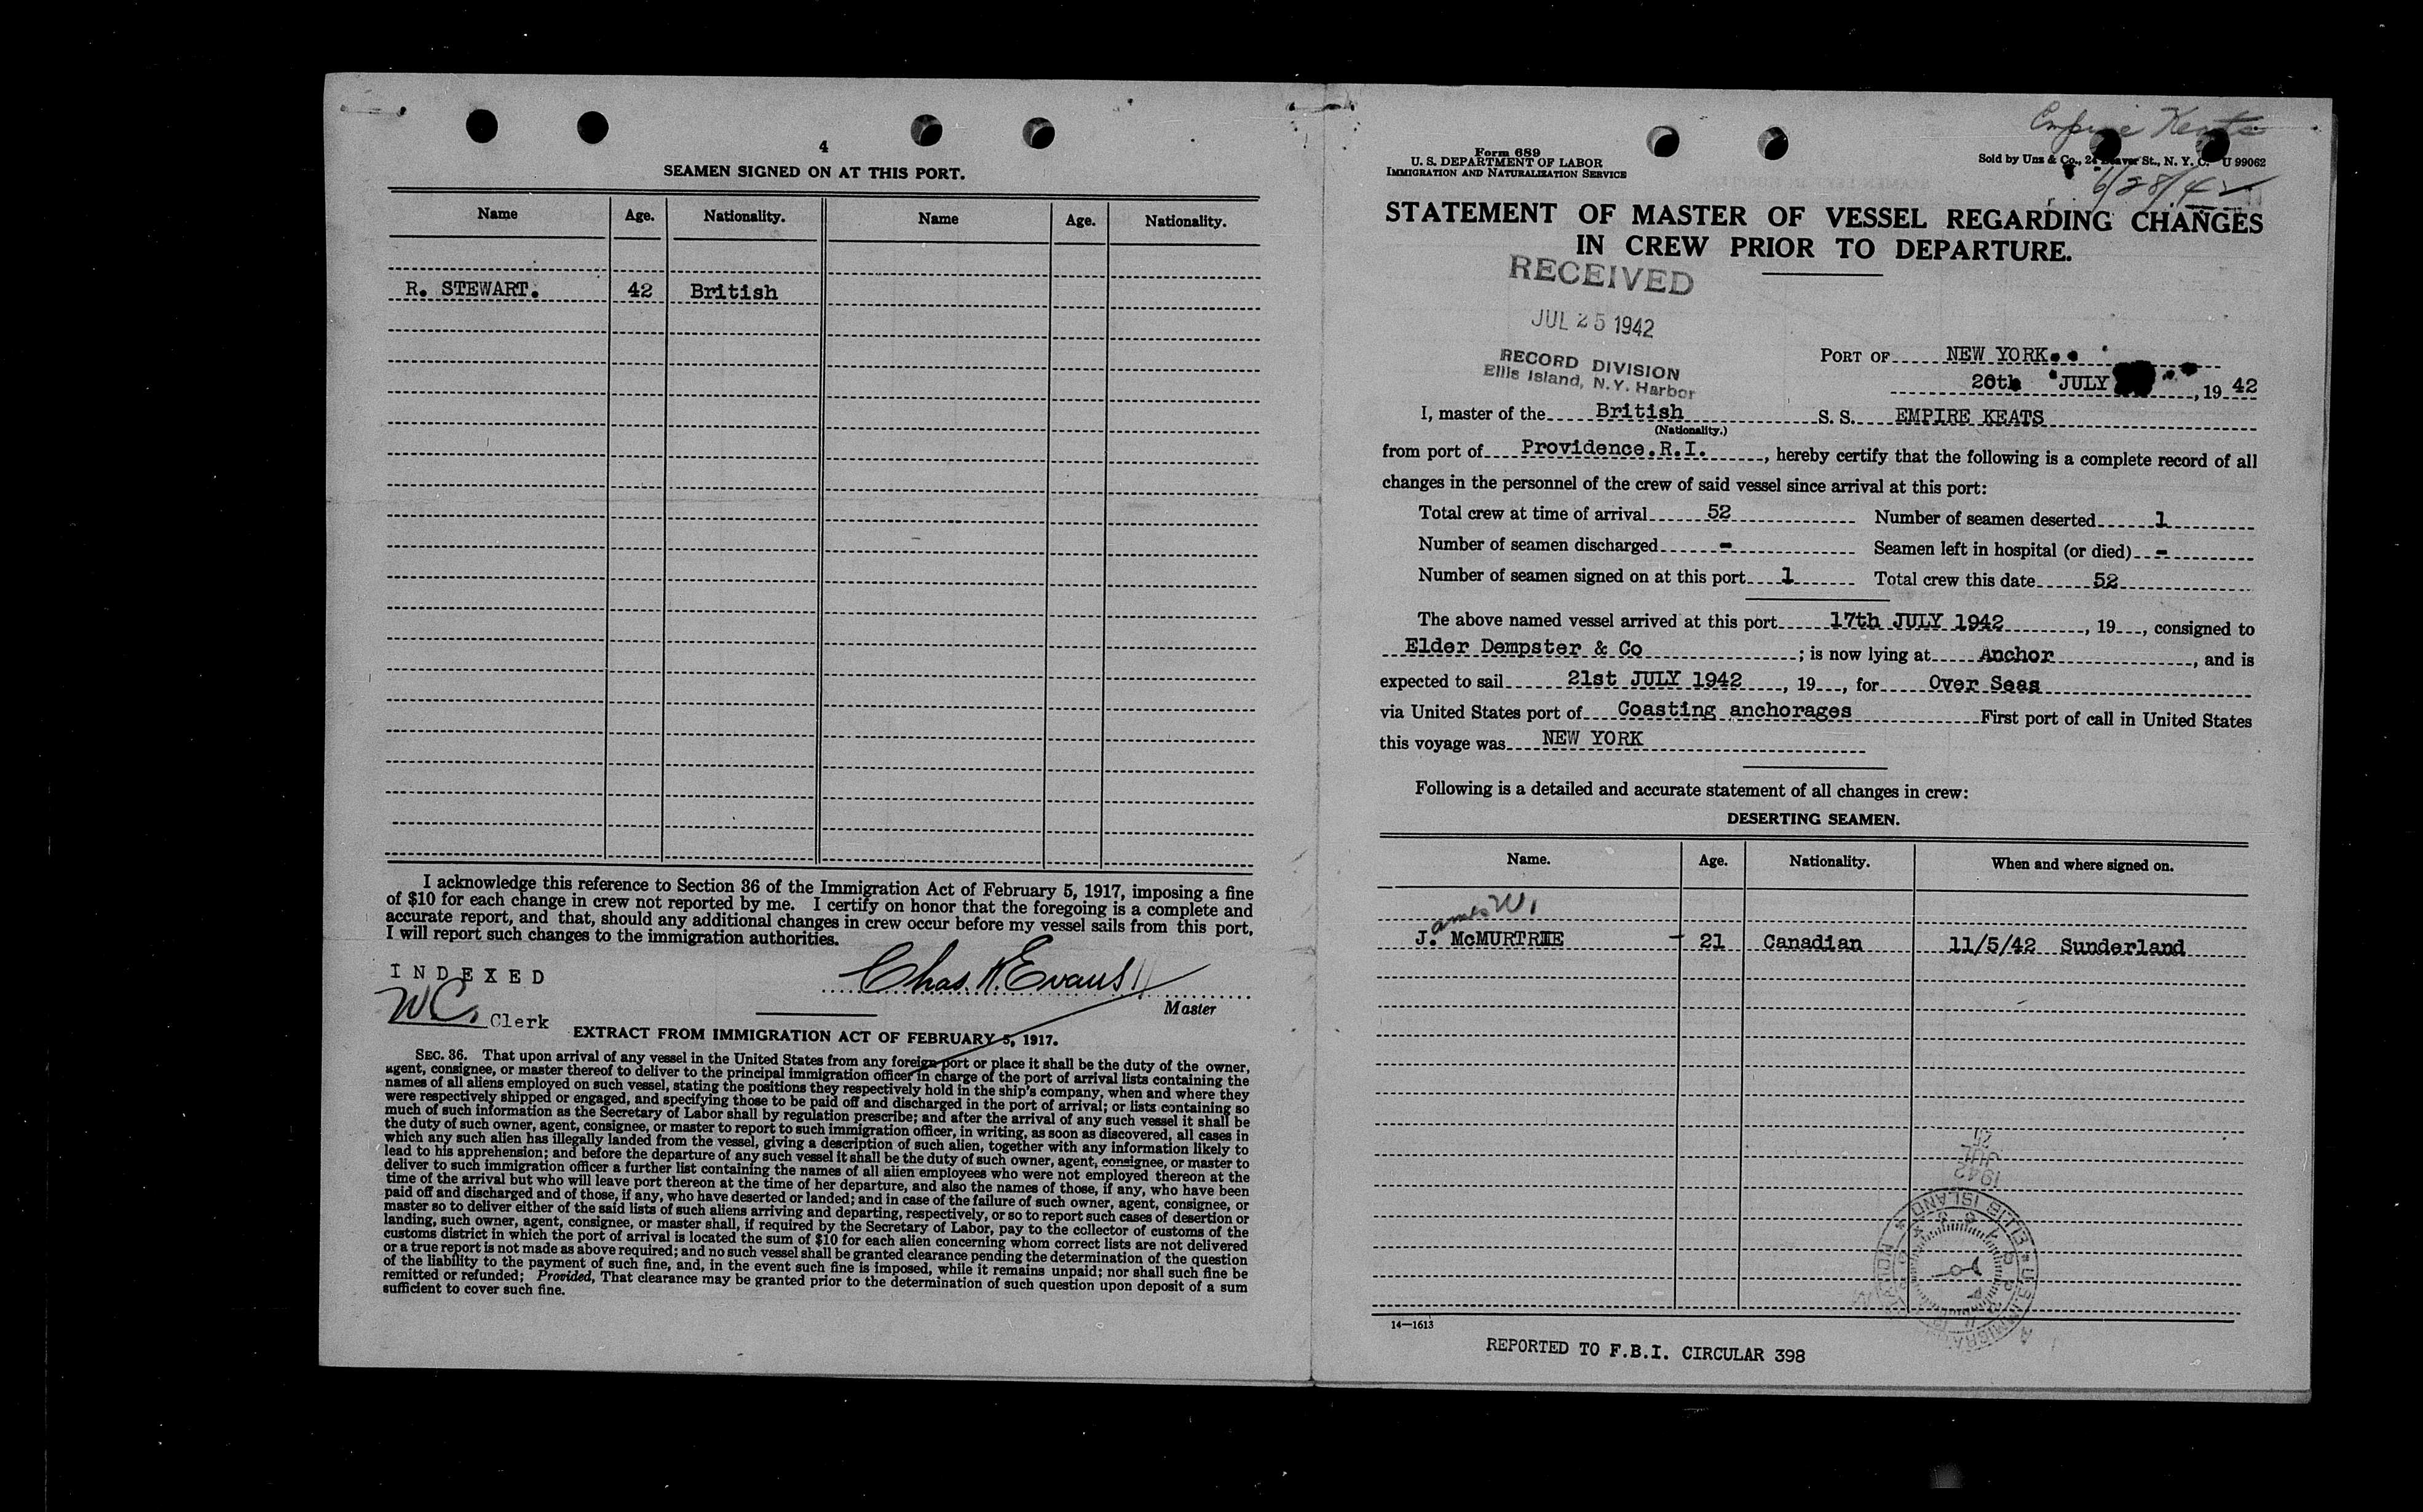 4
SEAMEN SIGNED ON AT THIS PORT.
Name Age. Nationality. Name Age. Nationality.
R. STEWART. 42 British
I acknowledge this reference to Section 36 of the Immigration Act of February 5, 1917, imposing a fine
of $10 for each change in crew not reported by me. I certify on honor that the foregoing is a complete and
accurate report, and that, should any additional changes in crew occur before my vessel sails from this port,
I will report such changes to the immigration authorities.
INDEXED
Chas. H. Evans
Master
WC. Clerk
EXTRACT FROM IMMIGRATION ACT OF FEBRUARY 5, 1917.
SEC. 36. That upon arrival of any vessel in the United States from any foreign port or place it shall be the duty of the owner,
agent, consignee, or master thereof to deliver to the principal immigration officer in charge of the port of arrival lists containing the
names of all aliens employed on such vessel, stating the positions they respectively hold in the ship's company, when and where they
were respectively shipped or engaged, and specifying those to be paid off and discharged in the port of arrival; or lists containing so
much of such information as the Secretary of Labor shall by regulation prescribe; and after the arrival of any such vessel it shall be
the duty of such owner, agent, consignee, or master to report to such immigration officer, in writing, as soon as discovered, all cases in
which any such alien has illegally landed from the vessel, giving a description of such alien, together with any information likely to
lead to his apprehension; and before the departure of any such vessel it shall be the duty of such owner, agent, consignee, or master to
deliver to such immigration officer a further list containing the names of all alien employees who were not employed thereon at the
time of the arrival but who will leave port thereon at the time of her departure, and also the names of those, if any, who have been
paid off and discharged and of those, if any, who have deserted or landed; and in case of the failure of such owner, agent, consignee, or
master so to deliver either of the said lists of such aliens arriving and departing, respectively, or so to report such cases of desertion or
landing, such owner, agent, consignee, or master shall, if required by the Secretary of Labor, pay to the collector of customs of the
customs district in which the port of arrival is located the sum of $10 for each alien concerning whom correct lists are not delivered
or a true report is not made as above required; and no such vessel shall be granted clearance pending the determination of the question
of the liability to the payment of such fine, and, in the event such fine is imposed, while it remains unpaid; nor shall such fine be
remitted or refunded; Provided, That clearance may be granted prior to the determination of such question upon deposit of a sum
sufficient to cover such fine.
Empire Keats
Form 689
U. S. DEPARTMENT OF LABOR
IMMIGRATION AND NATURALIZATION SERVICE
Sold by Unz & Co., 24 Beaver St., N. Y. C. U 99062
6/28/42
STATEMENT OF MASTER OF VESSEL REGARDING CHANGES
IN CREW PRIOR TO DEPARTURE.
RECEIVED
JUL 25 1942
RECORD DIVISION
Ellis Island, N.Y. Harbor
PORT OF NEW YORK
20th JULY, 19 42
I, master of the British S. S. EMPIRE KEATS
(Nationality.)
from port of Providence.R.I., hereby certify that the following is a complete record of all
changes in the personnel of the crew of said vessel since arrival at this port:
Total crew at time of arrival 52 Number of seamen deserted 1
Number of seamen discharged - Seamen left in hospital (or died) -
Number of seamen signed on at this port 1 Total crew this date 52
The above named vessel arrived at this port 17th JULY 1942, 19 , consigned to
Elder Dempster & Co ; is now lying at Anchor, and is
expected to sail 21st JULY 1942, 19 , for Over Seas
via United States port of Coasting anchorages First port of call in United States
this voyage was NEW YORK
Following is a detailed and accurate statement of all changes in crew:
DESERTING SEAMEN.
Name. Age. Nationality. When and where signed on.
ames W.
J. McMURTRIE - 21 Canadian 11/5/42 Sunderland
1942
JUL
ELLIS ISLAND
14—1613
REPORTED TO F.B.I. CIRCULAR 398